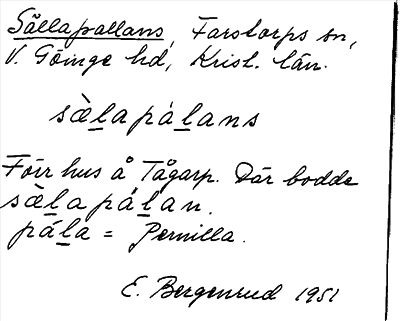 Sällapallans, Farstorps sn,
V. Göinge hd, Krist. län.
sæ̀lapálans
Förr hus å Tågarp. Där bodde
sæ̀lapálan.
pála = Pernilla.
E. Bergenrud 1951